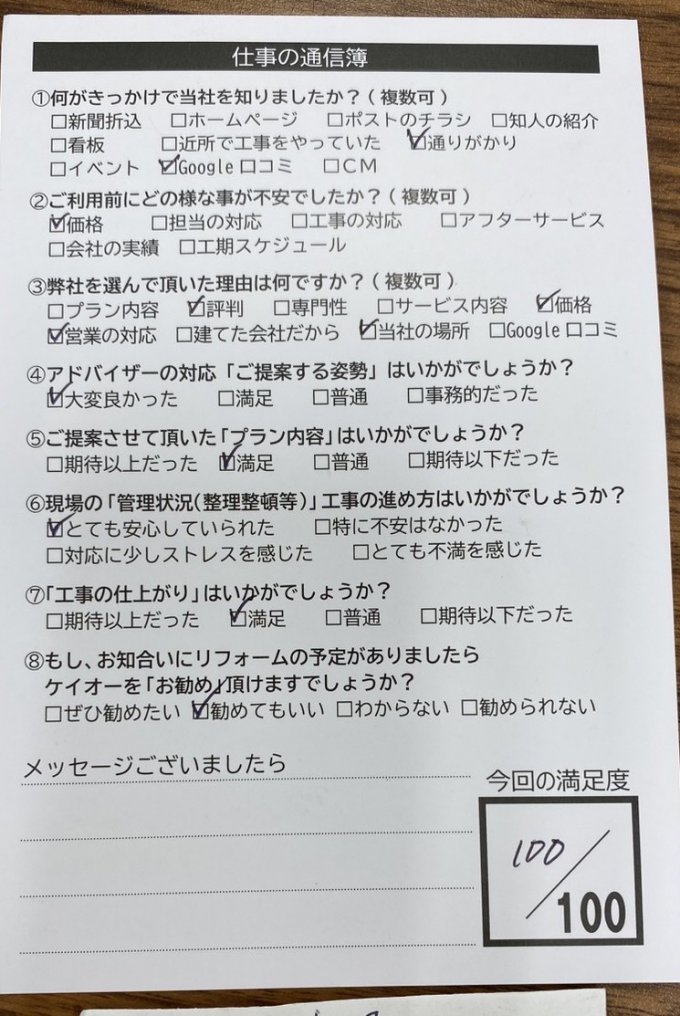 仕事の通信簿
①何がきっかけで当社を知りましたか？(複数可)
□新聞折込 □ホームページ □ポストのチラシ □知人の紹介
□看板 □近所で工事をやっていた ☑通りがかり
□イベント ☑Google口コミ □CM
②ご利用前にどの様な事が不安でしたか？(複数可)
☑価格 □担当の対応 □工事の対応 □アフターサービス
□会社の実績 □工期スケジュール
③弊社を選んで頂いた理由は何ですか？(複数可)
□プラン内容 ☑評判 □専門性 □サービス内容 ☑価格
☑営業の対応 □建てた会社だから ☑当社の場所 □Google口コミ
④アドバイザーの対応「ご提案する姿勢」はいかがでしょうか？
☑大変良かった □満足 □普通 □事務的だった
⑤ご提案させて頂いた「プラン内容」はいかがでしょうか？
□期待以上だった ☑満足 □普通 □期待以下だった
⑥現場の「管理状況(整理整頓等)」工事の進め方はいかがでしょうか？
☑とても安心していられた □特に不安はなかった
□対応に少しストレスを感じた □とても不満を感じた
⑦「工事の仕上がり」はいかがでしょうか？
□期待以上だった ☑満足 □普通 □期待以下だった
⑧もし、お知合いにリフォームの予定がありましたら
ケイオーを「お勧め」頂けますでしょうか？
□ぜひ勧めたい ☑勧めてもいい □わからない □勧められない
メッセージございましたら
今回の満足度
100/100